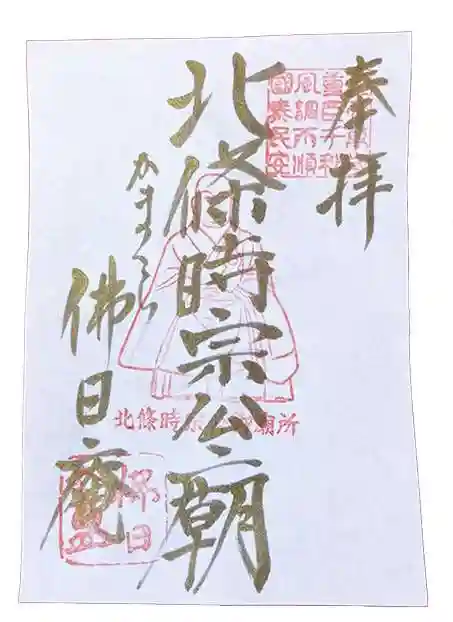 奉拝
重臣千秋
風調雨順
國泰民安
北條時宗公廟
北條時宗公御廟所
かまくら
佛日庵
佛日